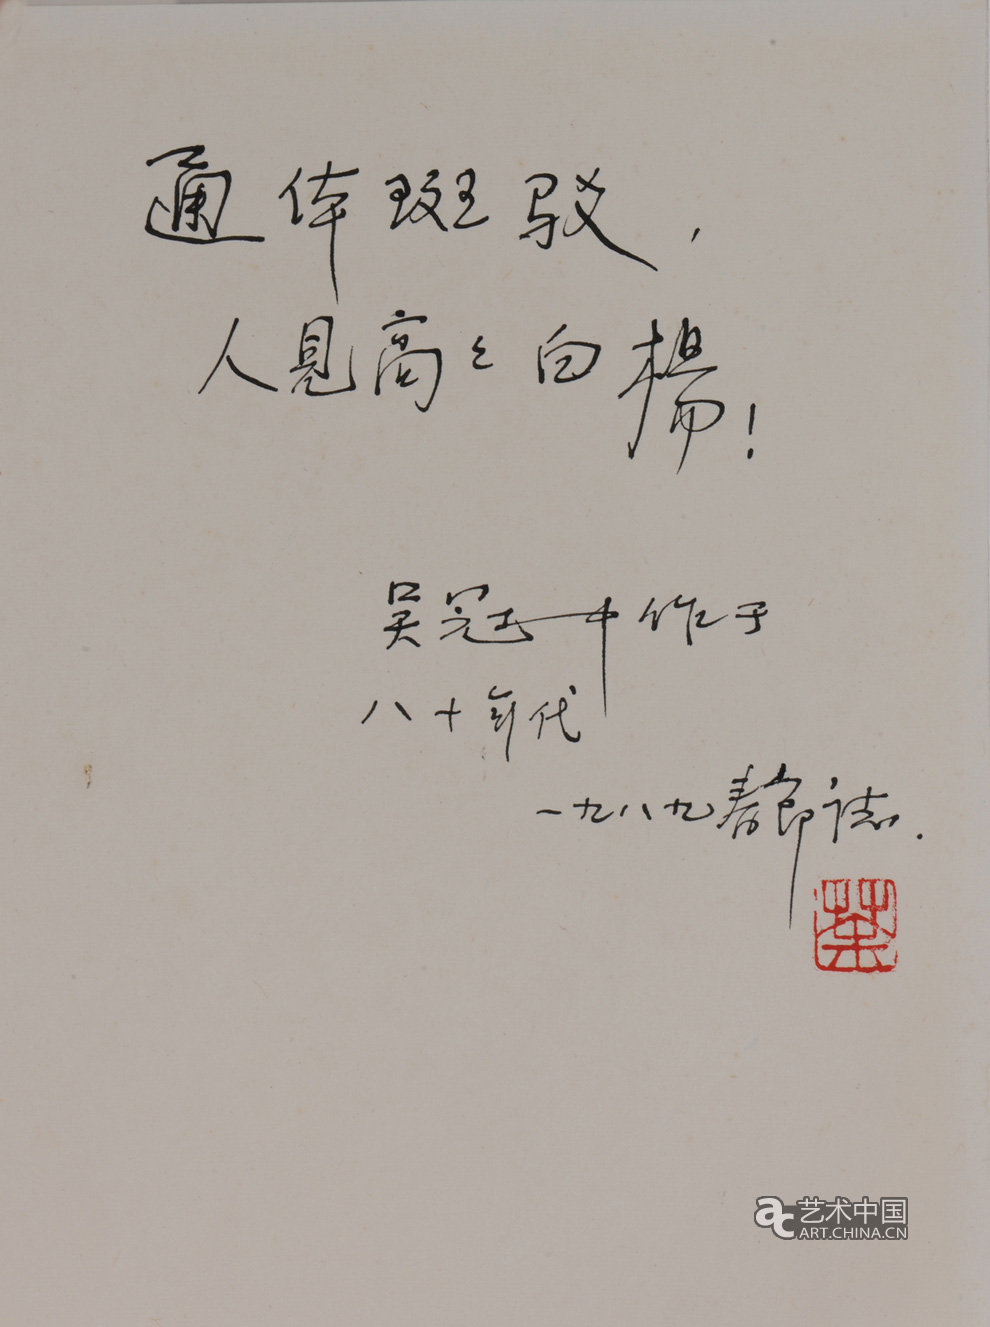 通体斑驳，
人見高々白楊！
吴冠中作于
八十年代
一九八九春節誌．
荼
艺术中国
ART.CHINA.CN